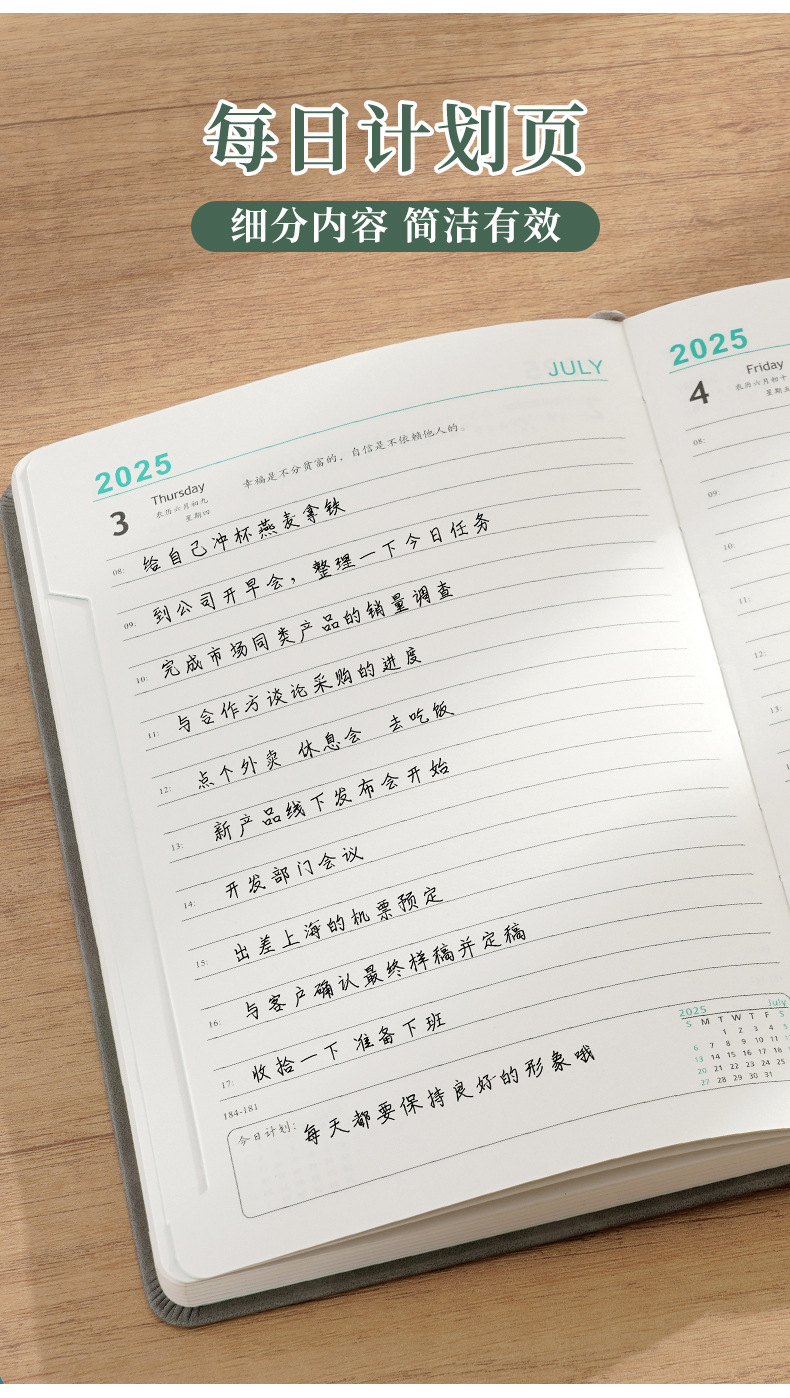 每日计划页
细分内容 简洁有效
JULY
2025
3
Thursday
农历六月初九
星期四
幸福是不分贫富的，自信是不依赖他人的。
08: 给自己冲杯燕麦拿铁
09: 到公司开早会，整理一下今日任务
10: 完成市场同类产品的销量调查
11: 与合作方谈论采购的进度
12: 点个外卖 休息会 去吃饭
13: 新产品线下发布会开始
14: 开发部门会议
15: 出差上海的机票预定
16: 与客户确认最终样稿并定稿
17: 收拾一下 准备下班
184-181
今日计划: 每天都要保持良好的形象哦
2025 July
S M T W T F S
1 2 3 4 5
6 7 8 9 10 11
13 14 15 16 17 18
20 21 22 23 24 25
27 28 29 30 31
2025
4
Friday
农历六月初十
星期五
08:
09:
10:
11:
12:
13: